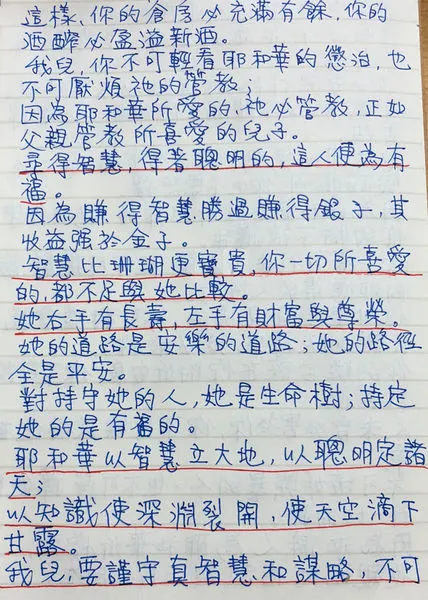 這樣、你的倉房必充滿有餘，你的
酒醡必盈溢新酒。
我兒，你不可輕看耶和華的懲治，也
不可厭煩祂的管教；
因為耶和華所愛的，祂必管教，正如
父親管教所喜愛的兒子。
尋得智慧，得著聰明的，這人便為有
福。
因為賺得智慧勝過賺得銀子，其
收益強於金子。
智慧比珊瑚更寶貴，你一切所喜愛
的，都不足與她比較。
她右手有長壽，左手有財富與尊榮。
她的道路是安樂的道路；她的路徑
全是平安。
對持守她的人，她是生命樹；持定
她的是有福的。
耶和華以智慧立大地，以聰明定諸
天；
以知識使深淵裂開，使天空滴下
甘露。
我兒，要謹守真智慧和謀略，不可